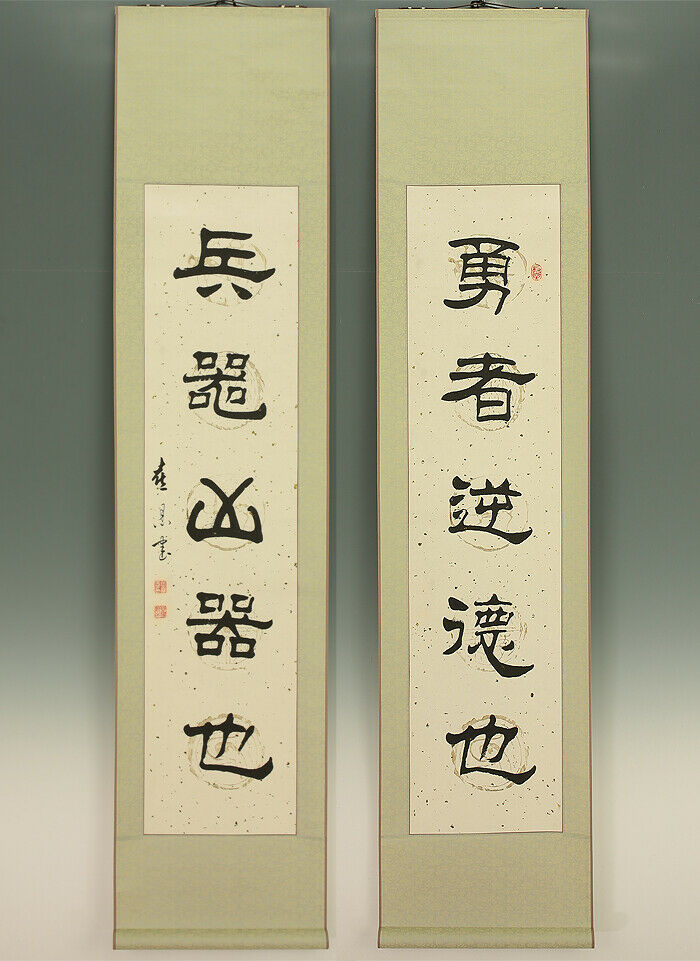 勇者逆德也
兵器凶器也